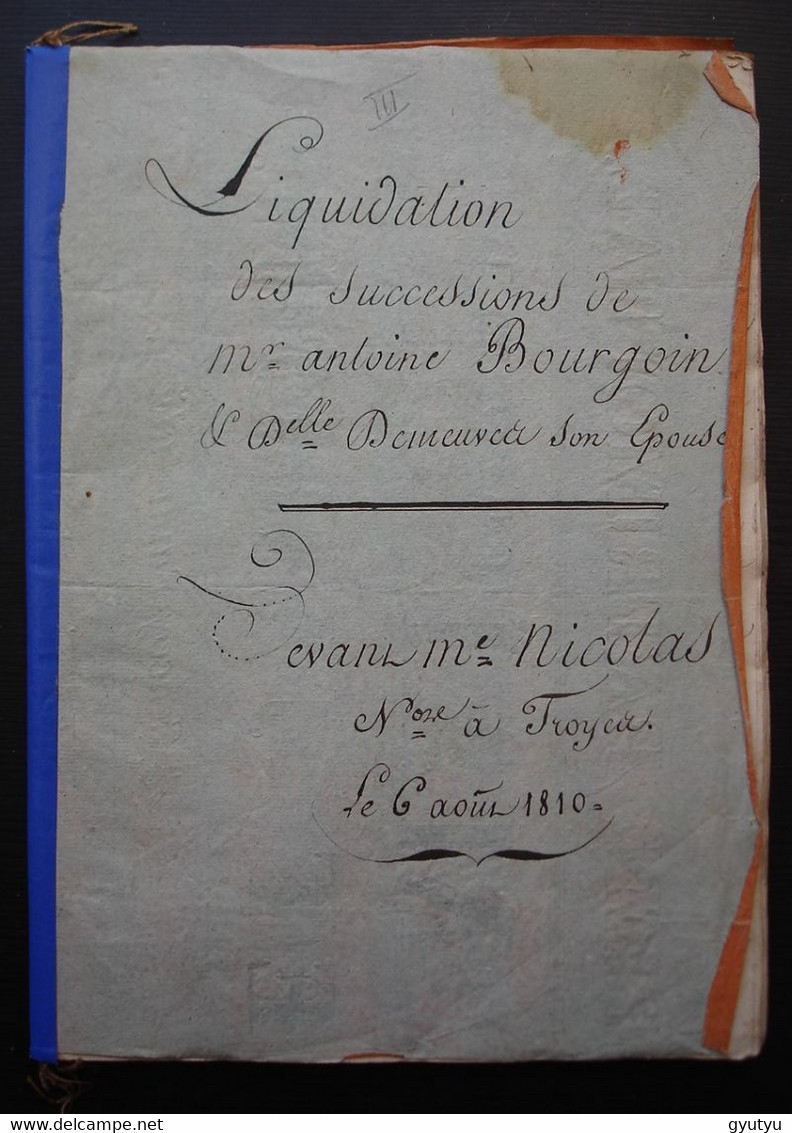 III
Liquidation
des successions de
mr antoine Bourgoin
& Delle Demeuves son Epouse
Devant me Nicolas
Nore à Troyes.
Le 6 août 1810=
www.delcampe.net
gyutyu